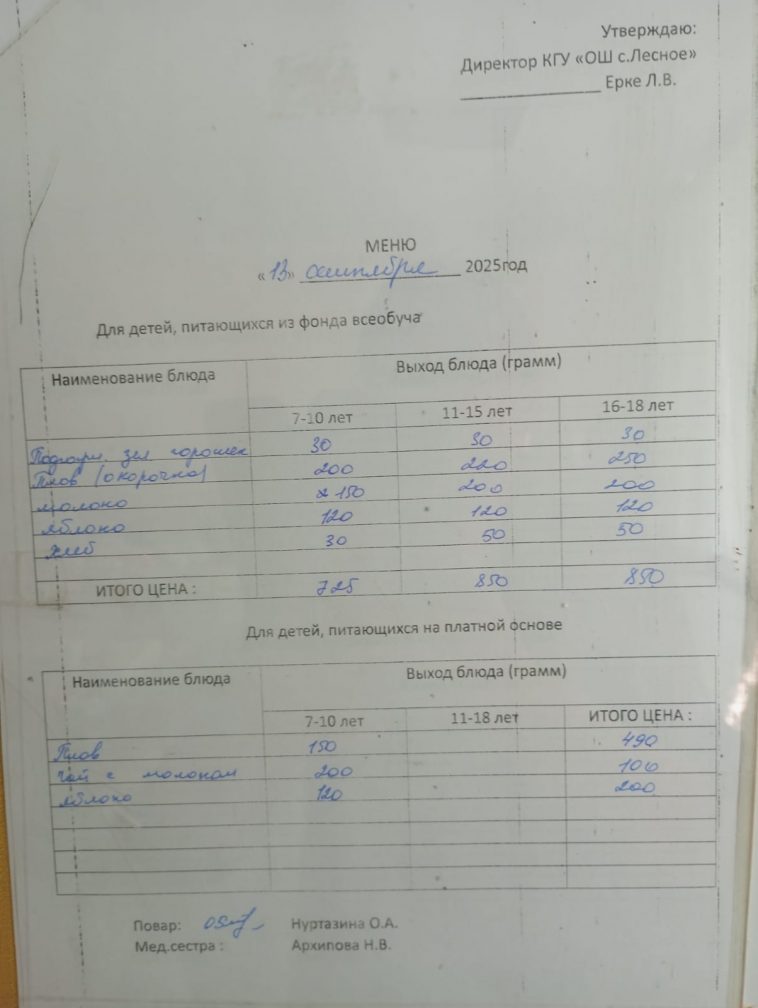 Утверждаю:
Директор КГУ «ОШ с.Лесное»
________________ Ерке Л.В.
МЕНЮ
«13» сентября 2025год
Для детей, питающихся из фонда всеобуча
Наименование блюда Выход блюда (грамм)
7-10 лет 11-15 лет 16-18 лет
Подгарн. зел горошек 30 30 30
Плов (окорочка) 200 220 250
молоко 150 200 200
яблоко 120 120 120
хлеб 30 50 50
ИТОГО ЦЕНА : 725 850 850
Для детей, питающихся на платной основе
Наименование блюда Выход блюда (грамм)
7-10 лет 11-18 лет ИТОГО ЦЕНА :
Плов 150 490
Чай с молоком 200 100
яблоко 120 200
Повар: Нуртазина О.А.
Мед.сестра : Архипова Н.В.